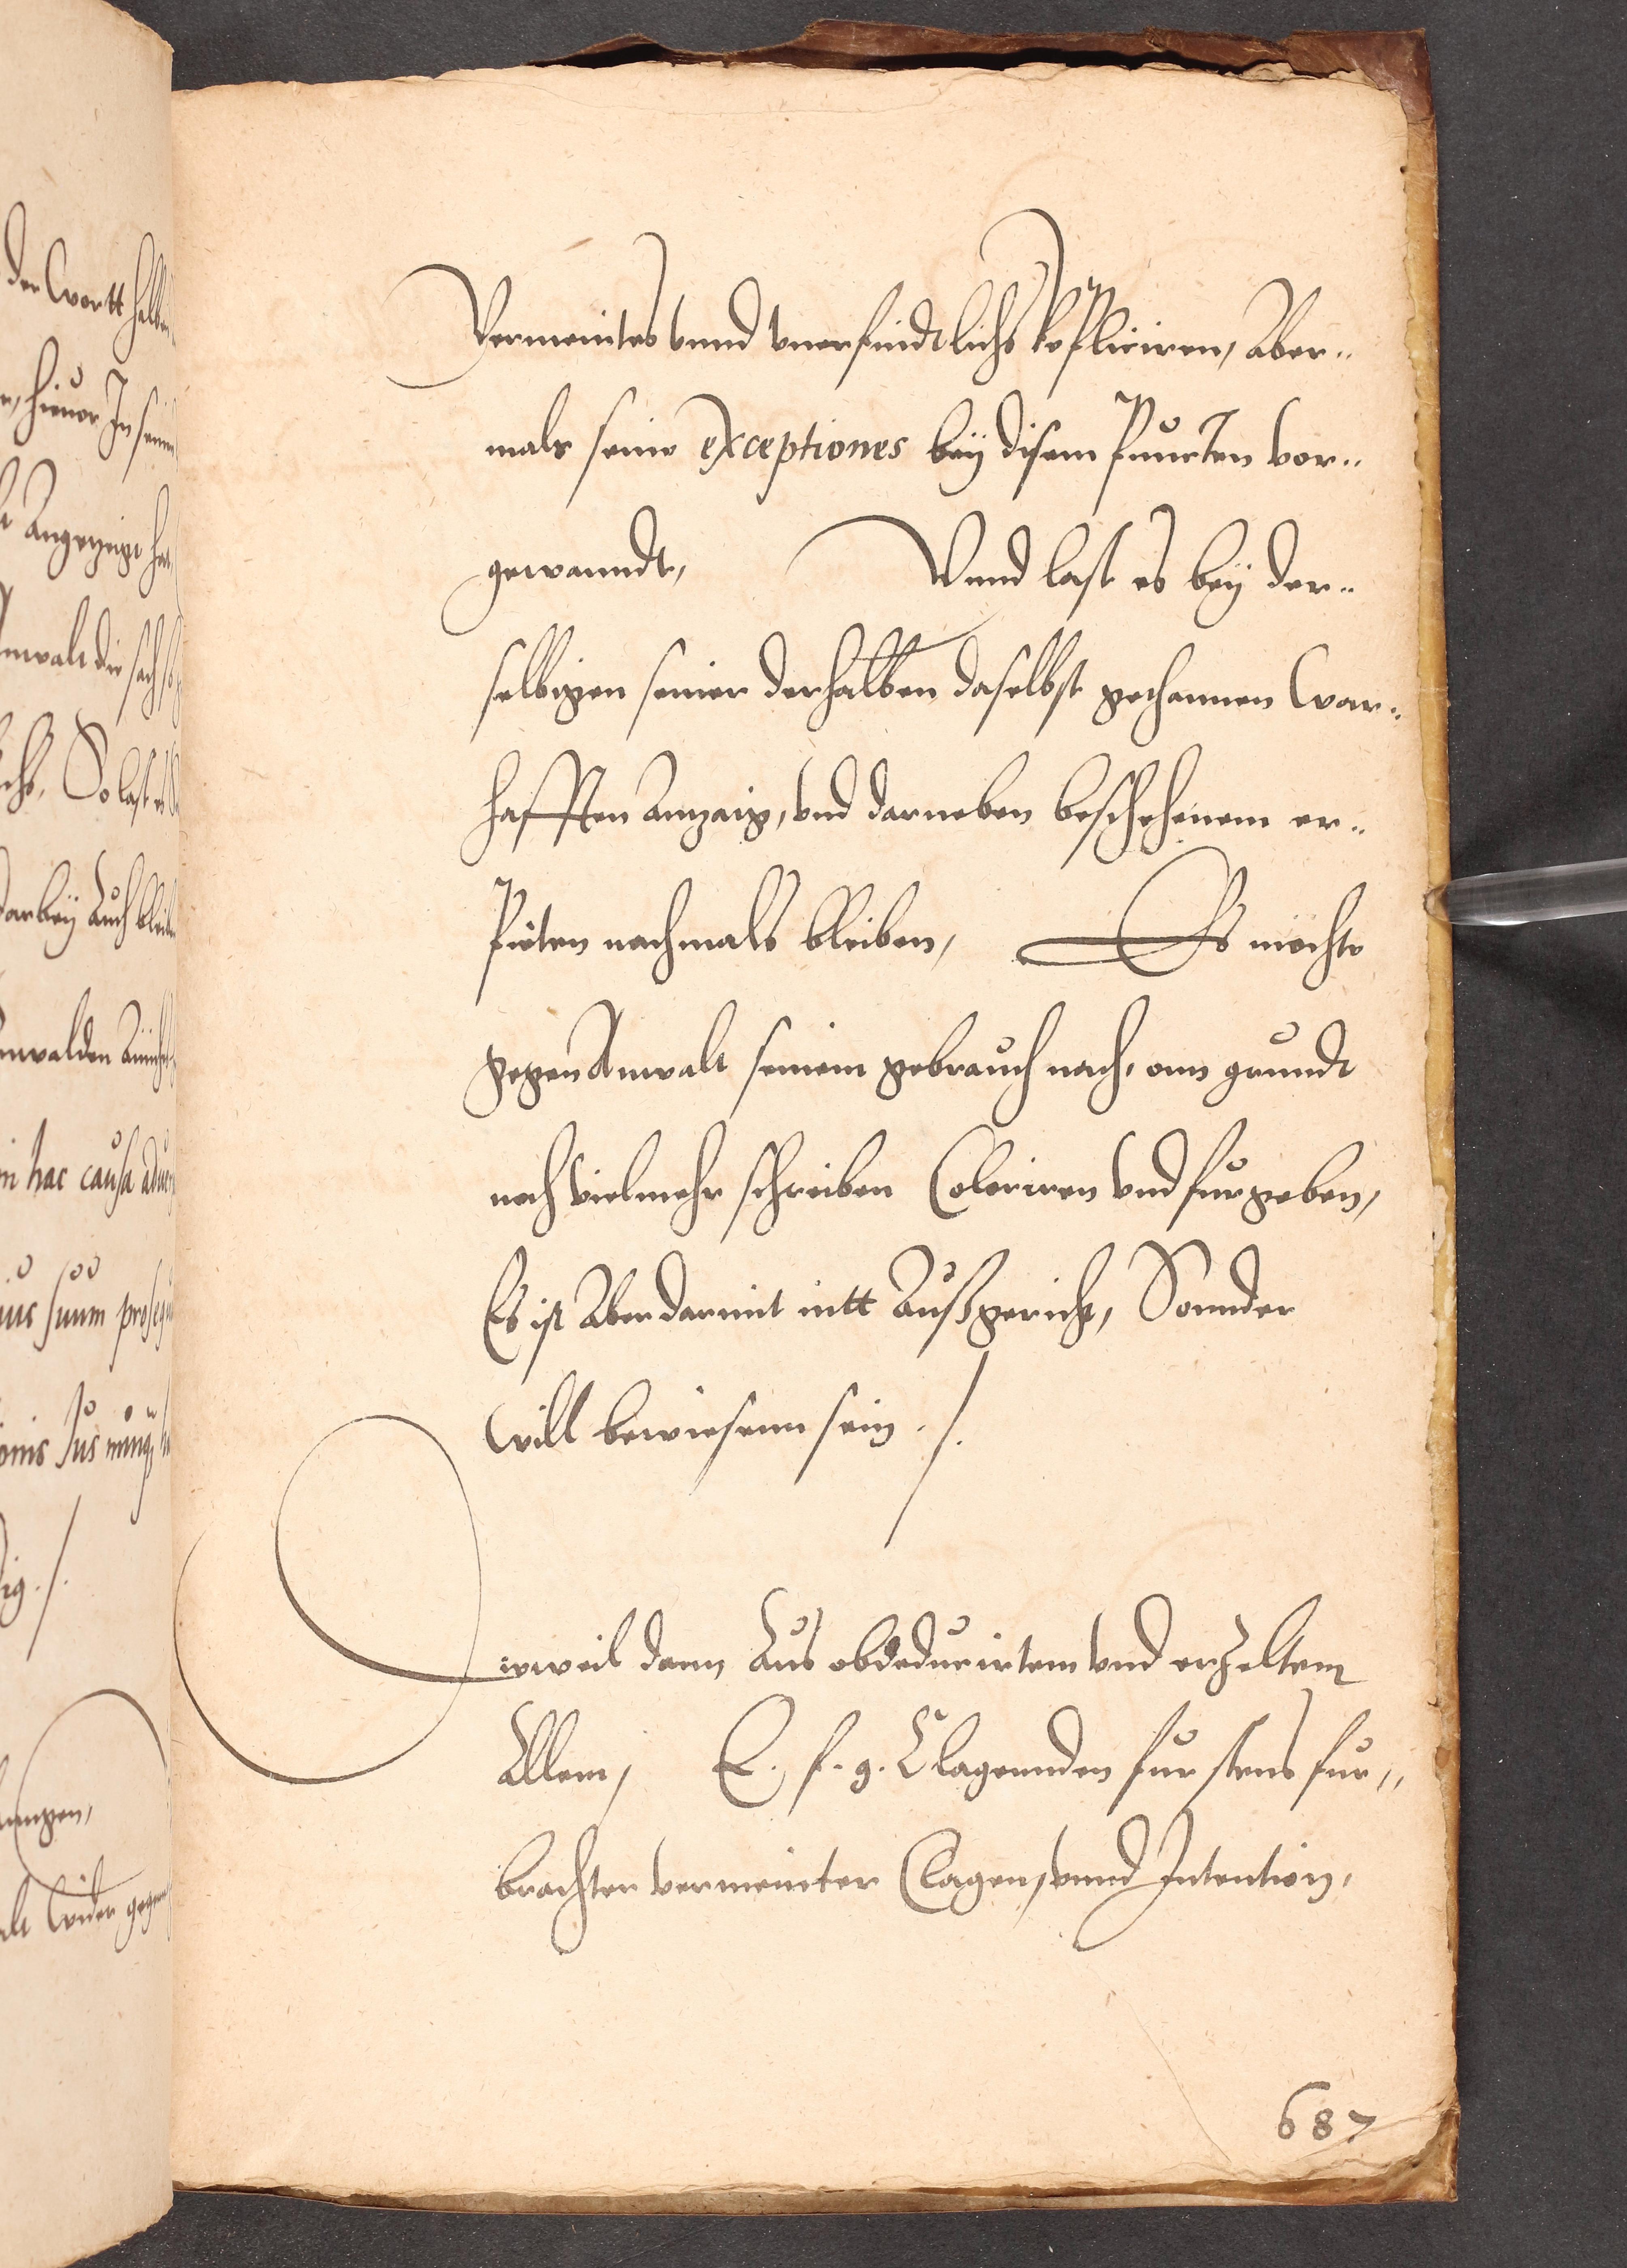 der Wortt halben
hieuor In seinen
Angezeigt hat
Anwalt die sach
So last es
darbey auch bleiben
Anwalden
in hac causa
ius suum
Jus
Vermeintes vnnd vnerfindtlichs Repliciren, Aber„
mals seine exceptiones beÿ disem Puncten vor„
gewanndt, Vnnd last es beÿ der„
selbigen seiner derhalben daselbst gethannen War„
hafften Anzaig, vnd darneben beschehenem er„
Pieten nachmals bleiben, Es möchte
gegen Anwalt seinem gebrauch nach, onn grundt
noch vielmehr schreiben Coloriren vnd furgeben,
Es ist Aber darmit nitt Außgericht, Sonnder
Will bewiesenn sein ./.
Dieweil dann Aus obdeducirtem vnd erzeltem
Allem, E. f. g. Clagennden furstens fur„
brachten vermeinter Clagen, vnnd Intention,
687